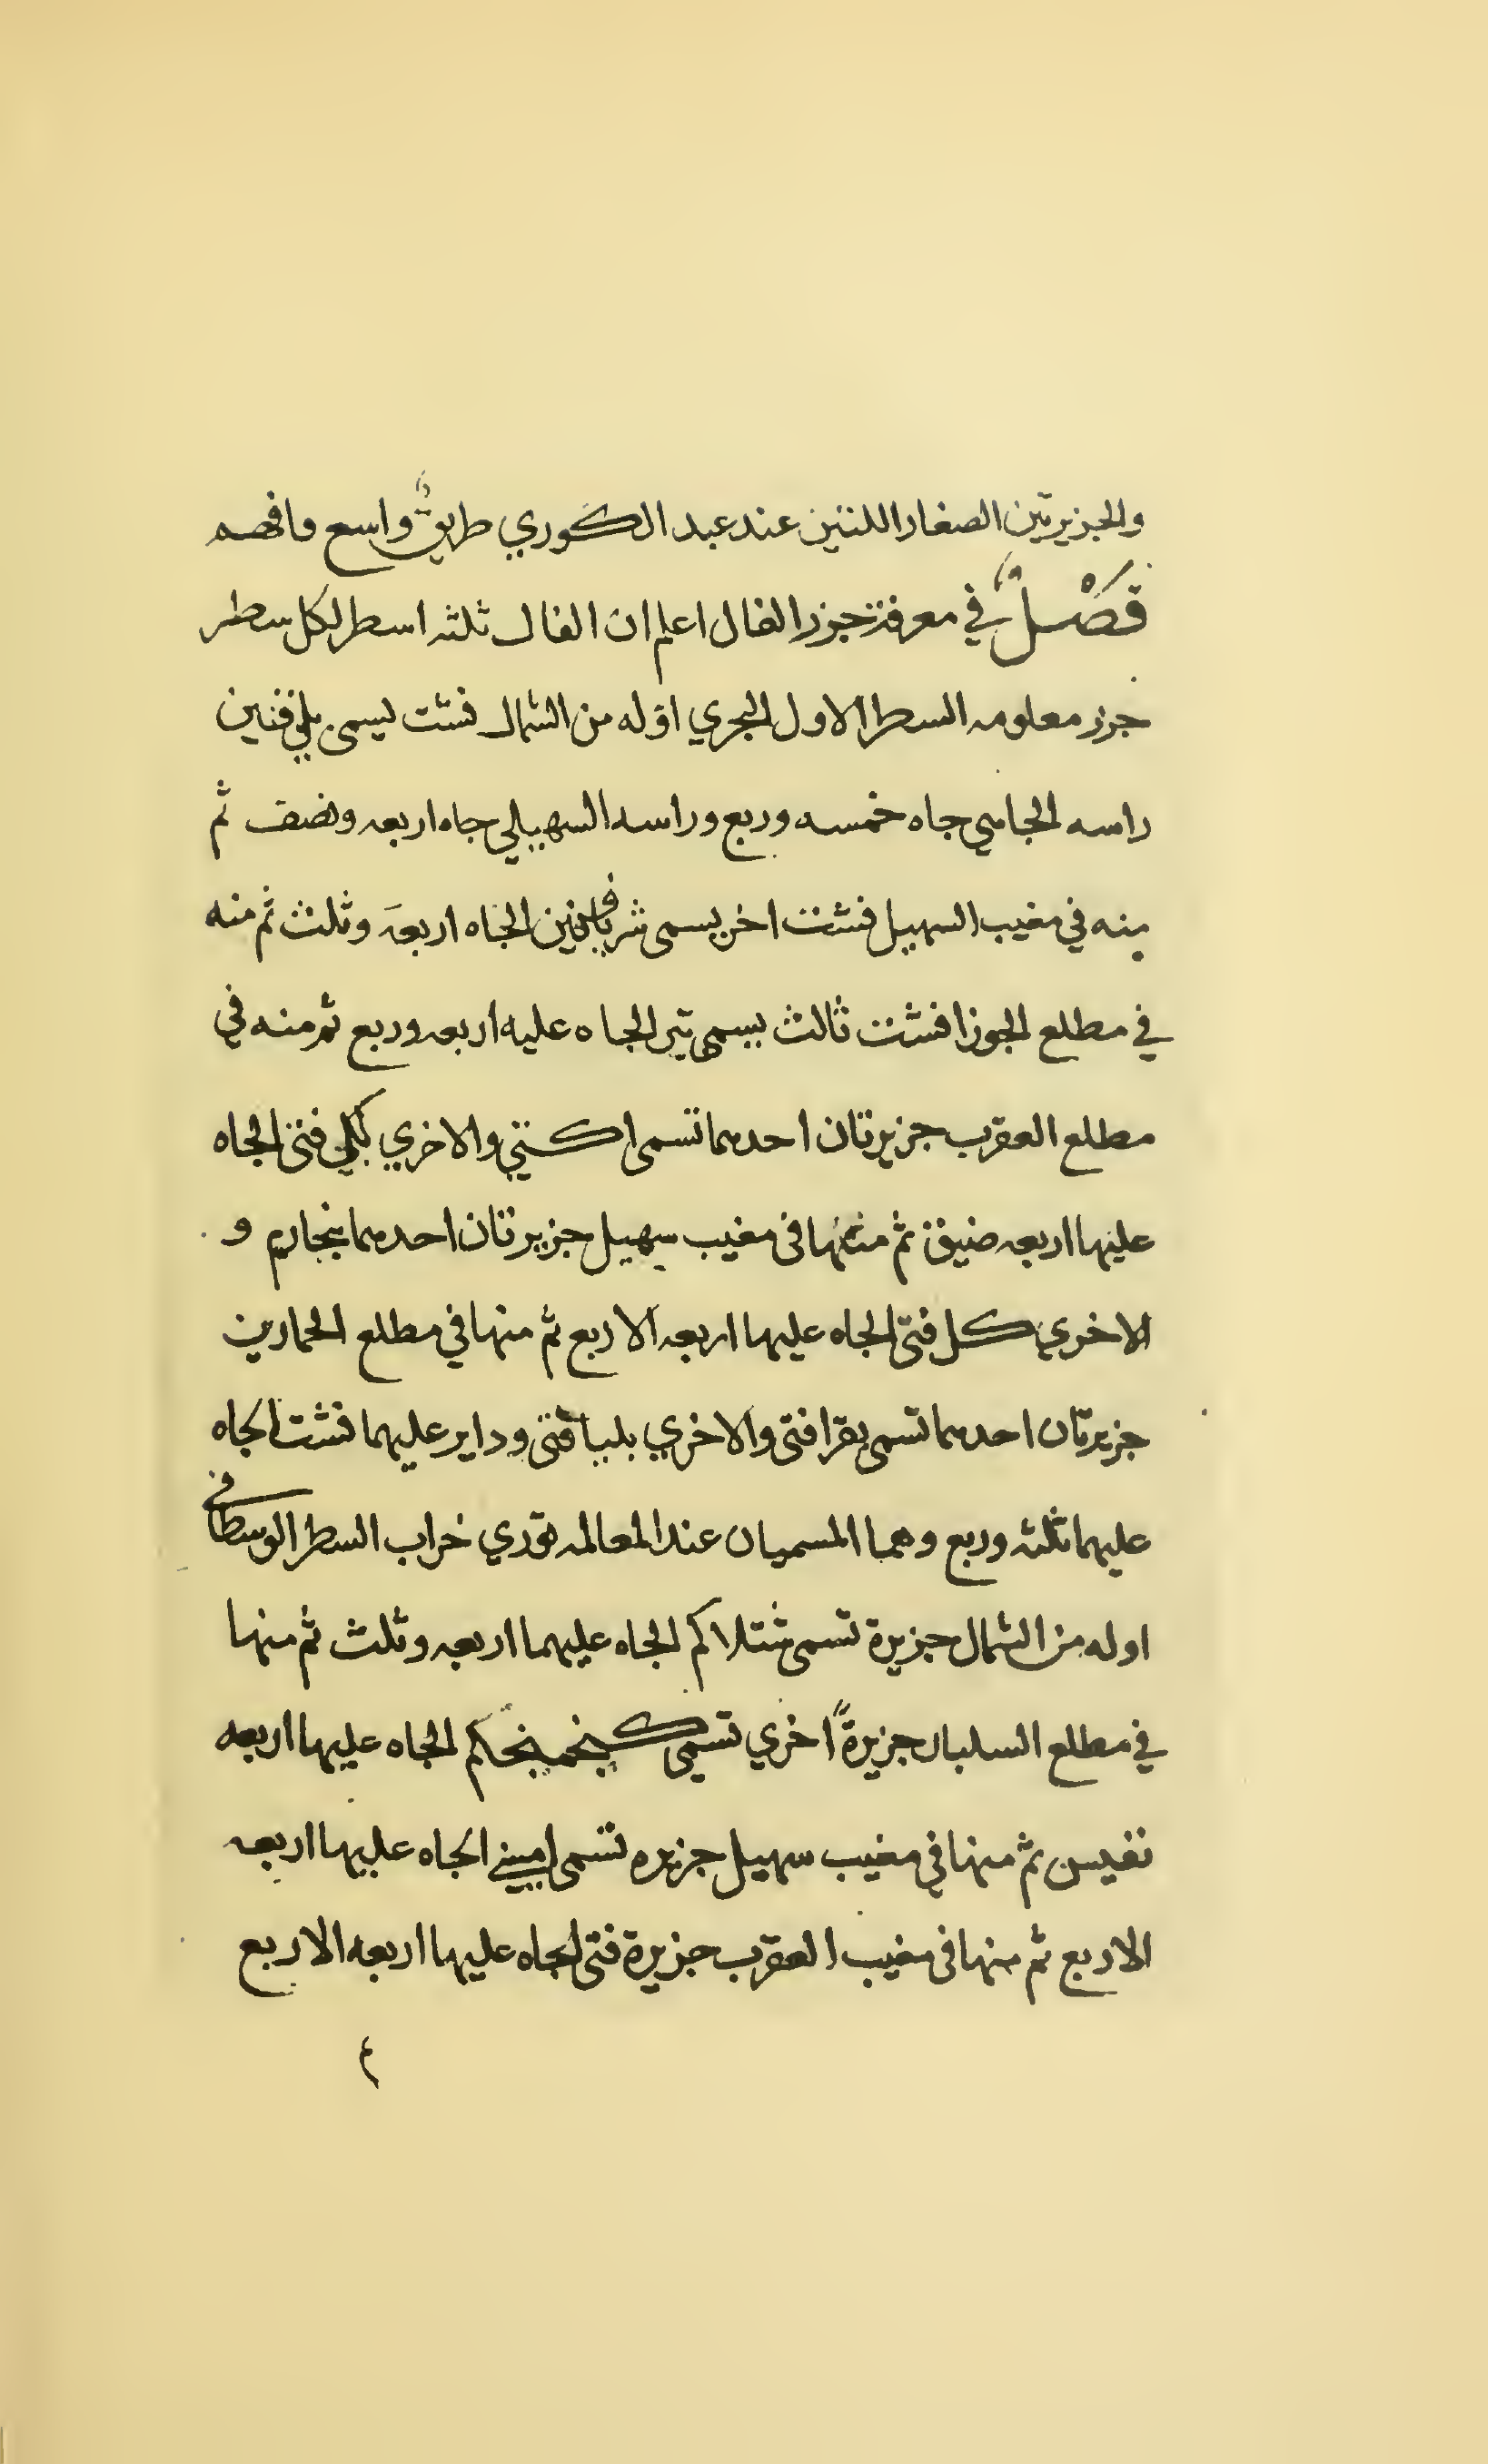 والجزيرتين الصغار اللتين عند عبد الكوري طريقٌ واسع فافهم
فَصْلٌ في معرفة جزر الفال اعلم ان الفال ثلثه اسطر لكل سطر
جزر معلومه السطر الاول البحري اوله من الشمال فشت يسمى بلي فنين
راسه الجاهي جاه خمسه وربع وراسه السهيلي جاه اربعه ونصف ثم
منه في مغيب السهيل فشت اخر يسمى الجاه اربعه وثلث ثم منه
في مطلع الجوزا فشت ثالث يسمى تير الجاه عليه اربعه وربع ثم منه في
مطلع العقرب جزيرتان احدهما تسمى اكتني والاخري كلي فتي الجاه
عليها اربعه ضيق ثم منها في مغيب سهيل جزيرتان احدهما بنجارم و
الاخري كل فتي الجاه عليها اربعه الا ربع ثم منها في مطلع الحمارين
جزيرتان احدهما تسمى بقرا فتي والاخري بليا فتي وداير عليهما فشت الجاه
عليهما ثلثه وربع وهما المسميان عند المعالمه قوري خراب السطر الوسطاني
اوله من الشمال جزيرة تسمى شتلاكم الجاه عليهما اربعه وثلث ثم منها
في مطلع السلبار جزيرةً اخري تسمى الجاه عليها اربعه
نفيس ثم منها في مغيب سهيل جزيره تسمى اميني الجاه عليها اربعه
الا ربع ثم منها في مغيب العقرب جزيرة فتي الجاه عليها اربعه الا ربع
٤